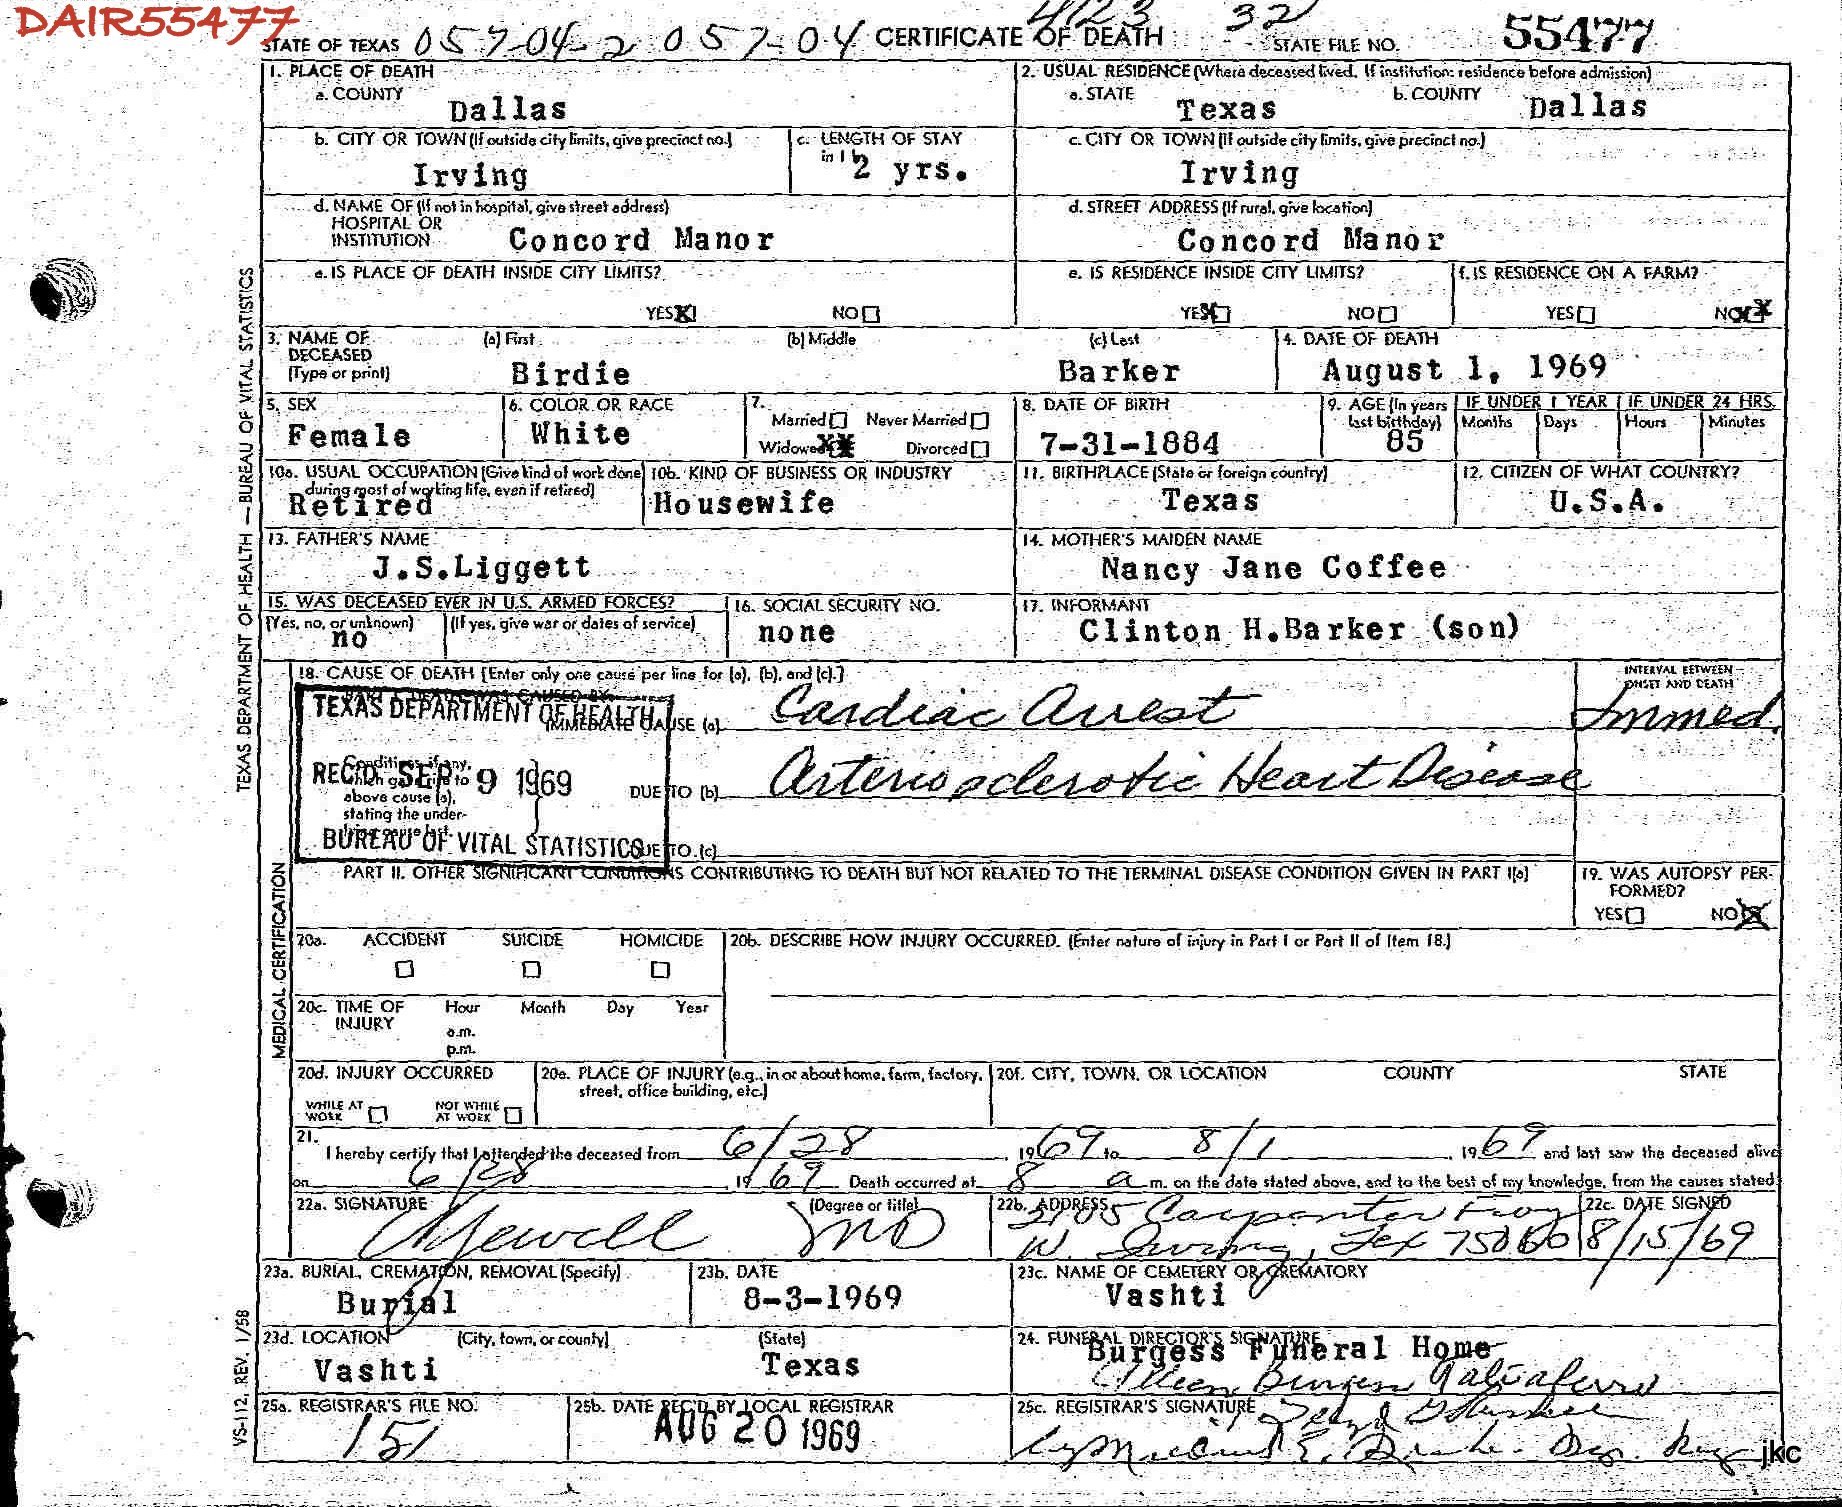 DAIR55477
4123 32
STATE OF TEXAS 057-04-2 057-04 CERTIFICATE OF DEATH STATE FILE NO. 55477
TEXAS DEPARTMENT OF HEALTH — BUREAU OF VITAL STATISTICS
1. PLACE OF DEATH
a. COUNTY
Dallas
2. USUAL RESIDENCE (Where deceased lived. If institution: residence before admission)
a. STATE b. COUNTY
Texas Dallas
b. CITY OR TOWN (If outside city limits, give precinct no.)
Irving
c. LENGTH OF STAY
in 1 b
2 yrs.
c. CITY OR TOWN (If outside city limits, give precinct no.)
Irving
d. NAME OF (If not in hospital, give street address)
HOSPITAL OR
INSTITUTION Concord Manor
d. STREET ADDRESS (If rural, give location)
Concord Manor
e. IS PLACE OF DEATH INSIDE CITY LIMITS?
YES X NO
e. IS RESIDENCE INSIDE CITY LIMITS?
YES X NO
f. IS RESIDENCE ON A FARM?
YES NO XX
3. NAME OF
DECEASED
(Type or print)
(a) First (b) Middle (c) Last
Birdie Barker
4. DATE OF DEATH
August 1, 1969
5. SEX
Female
6. COLOR OR RACE
White
7.
Married Never Married
Widowed XX Divorced
8. DATE OF BIRTH
7-31-1884
9. AGE (In years
last birthday)
85
IF UNDER 1 YEAR IF UNDER 24 HRS.
Months Days Hours Minutes
10a. USUAL OCCUPATION (Give kind of work done
during most of working life, even if retired)
Retired
10b. KIND OF BUSINESS OR INDUSTRY
Housewife
11. BIRTHPLACE (State or foreign country)
Texas
12. CITIZEN OF WHAT COUNTRY?
U.S.A.
13. FATHER'S NAME
J.S.Liggett
14. MOTHER'S MAIDEN NAME
Nancy Jane Coffee
15. WAS DECEASED EVER IN U.S. ARMED FORCES?
(Yes, no, or unknown) (If yes, give war or dates of service)
no
16. SOCIAL SECURITY NO.
none
17. INFORMANT
Clinton H.Barker (son)
MEDICAL CERTIFICATION
18. CAUSE OF DEATH [Enter only one cause per line for (a), (b), and (c).]
INTERVAL BETWEEN
ONSET AND DEATH
PART I. DEATH WAS CAUSED BY:
TEXAS DEPARTMENT OF HEALTH
IMMEDIATE CAUSE (a) Cardiac Arrest Immed.
Conditions, if any,
which gave rise to
above cause (a),
stating the under-
lying cause last.
REC'D SEP 9 1969
DUE TO (b) Arteriosclerotic Heart Disease
BUREAU OF VITAL STATISTICS
DUE TO (c)
PART II. OTHER SIGNIFICANT CONDITIONS CONTRIBUTING TO DEATH BUT NOT RELATED TO THE TERMINAL DISEASE CONDITION GIVEN IN PART I(a)
19. WAS AUTOPSY PER-
FORMED?
YES NO X
20a. ACCIDENT SUICIDE HOMICIDE
20b. DESCRIBE HOW INJURY OCCURRED. (Enter nature of injury in Part I or Part II of Item 18.)
20c. TIME OF
INJURY
Hour Month Day Year
a.m.
p.m.
20d. INJURY OCCURRED
WHILE AT
WORK
NOT WHILE
AT WORK
20e. PLACE OF INJURY (e.g., in or about home, farm, factory,
street, office building, etc.)
20f. CITY, TOWN, OR LOCATION COUNTY STATE
21.
I hereby certify that I attended the deceased from 6/28 1969 to 8/1 1969 and last saw the deceased alive
on 6/28 1969 Death occurred at 8 a m. on the date stated above, and to the best of my knowledge, from the causes stated.
22a. SIGNATURE (Degree or title)
Jewell MD
22b. ADDRESS
2105 Carpenter Frwy
W. Irving, Tex 75060
22c. DATE SIGNED
8/15/69
23a. BURIAL, CREMATION, REMOVAL (Specify)
Burial
23b. DATE
8-3-1969
23c. NAME OF CEMETERY OR CREMATORY
Vashti
23d. LOCATION (City, town, or county) (State)
Vashti Texas
24. FUNERAL DIRECTOR'S SIGNATURE
Burgess Funeral Home
Burgess Taliaferro
25a. REGISTRAR'S FILE NO.
151
25b. DATE REC'D BY LOCAL REGISTRAR
AUG 20 1969
25c. REGISTRAR'S SIGNATURE
VS-112, REV. 1/58
jkc